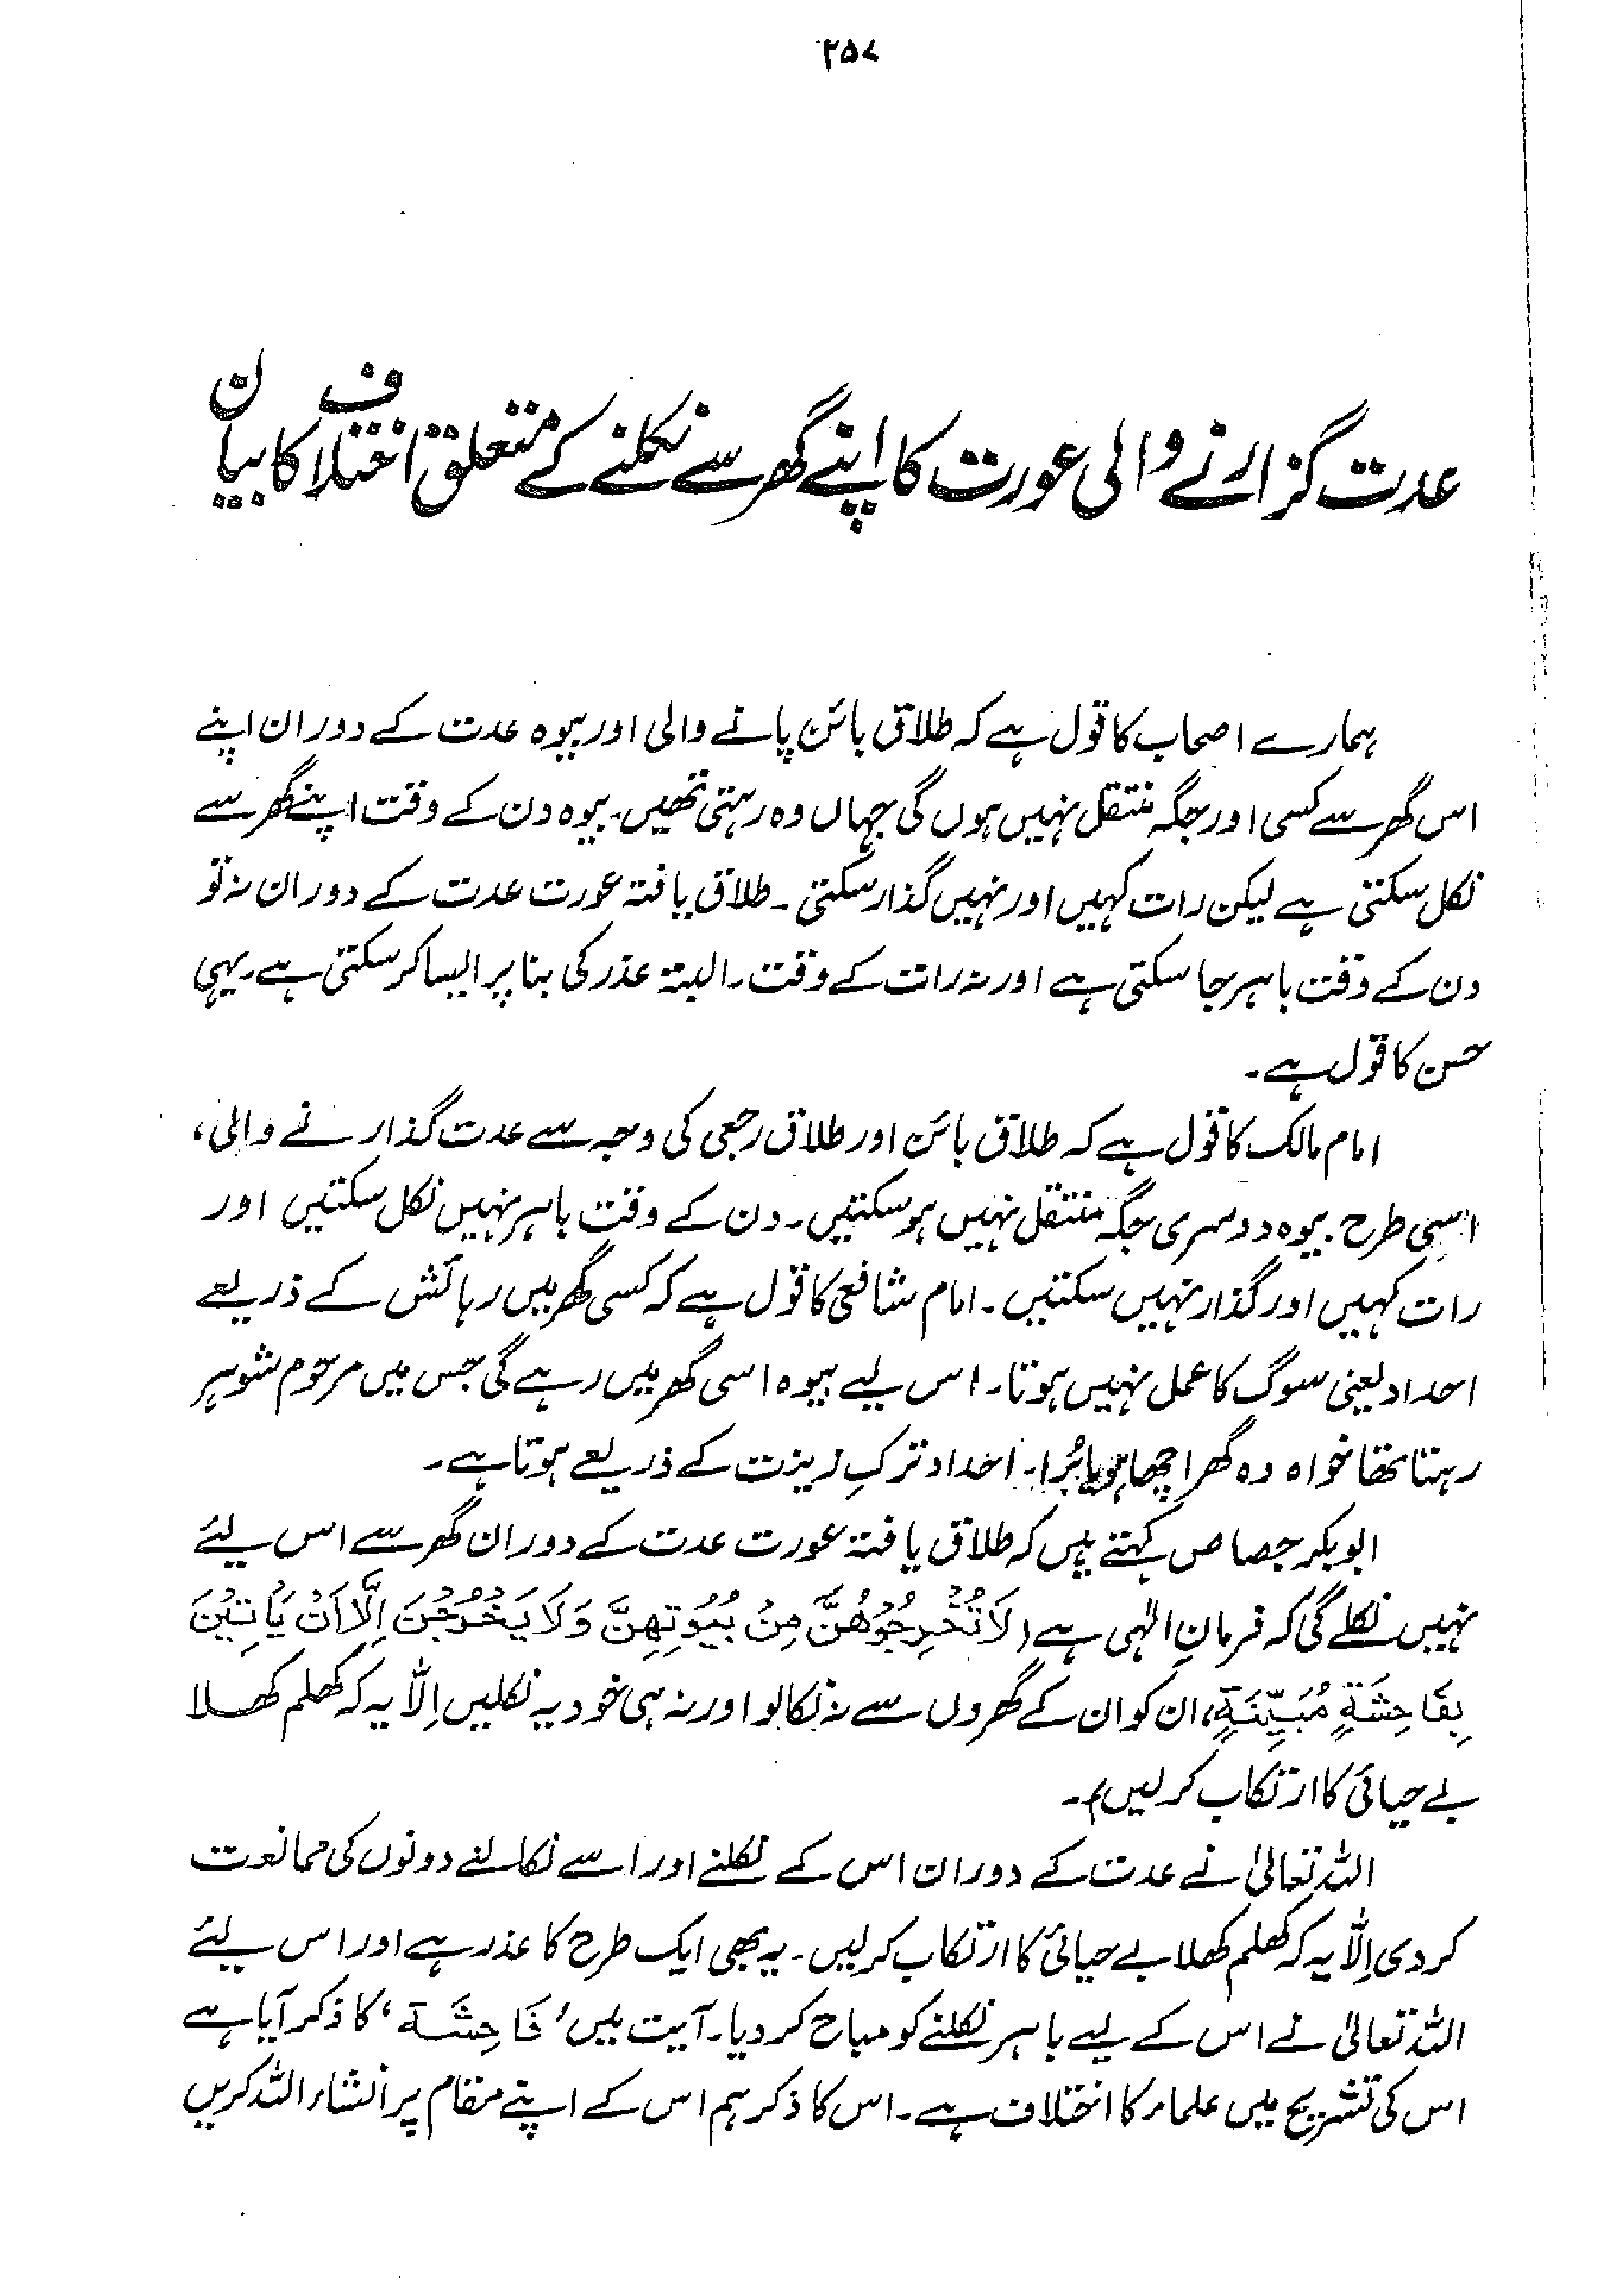 ۲۵۷
عدت گزارنے والی عورت کا اپنے گھر سے نکلنے کے متعلق اختلاف کا بیان
ہمارے اصحاب کا قول ہے کہ طلاق بائن پانے والی اور بیوہ عدت کے دوران اپنے
اس گھر سے کسی اور جگہ منتقل نہیں ہوں گی جہاں وہ رہتی تھیں۔ بیوہ دن کے وقت اپنے گھر سے
نکل سکتی ہے لیکن رات کہیں اور نہیں گذار سکتی۔ طلاق یافتہ عورت عدت کے دوران نہ تو
دن کے وقت باہر جا سکتی ہے اور نہ رات کے وقت۔ البتہ عذر کی بنا پر ایسا کر سکتی ہے۔ یہی
حسن کا قول ہے۔
امام مالک کا قول ہے کہ طلاق بائن اور طلاق رجعی کی وجہ سے عدت گذارنے والی،
اسی طرح بیوہ دوسری جگہ منتقل نہیں ہو سکتیں۔ دن کے وقت باہر نہیں نکل سکتیں اور
رات کہیں اور گذار نہیں سکتیں۔ امام شافعی کا قول ہے کہ کسی گھر میں رہائش کے ذریعے
احداد یعنی سوگ کا عمل نہیں ہوتا۔ اس لیے بیوہ اسی گھر میں رہے گی جس میں مرحوم شوہر
رہتا تھا خواہ وہ گھر اچھا ہو یا بُرا۔ احداد ترکِ زینت کے ذریعے ہوتا ہے۔
ابوبکر جصاص کہتے ہیں کہ طلاق یافتہ عورت عدت کے دوران گھر سے اس لیئے
نہیں نکلے گی کہ فرمانِ الٰہی ہے (لَا تُخْرِجُوْهُنَّ مِنْ بُيُوْتِهِنَّ وَلَا يَخْرُجْنَ اِلَّا اَنْ يَأْتِيْنَ
بِفَاحِشَةٍ مُبَيِّنَةٍ، ان کو ان کے گھروں سے نہ نکالو اور نہ ہی خود یہ نکلیں اِلّا یہ کہ کھلم کھلا
بے حیائی کا ارتکاب کر لیں)۔
اللہ تعالیٰ نے عدت کے دوران اس کے نکلنے اور اسے نکالنے دونوں کی ممانعت
کر دی اِلّا یہ کہ کھلم کھلا بے حیائی کا ارتکاب کر لیں۔ یہ بھی ایک طرح کا عذر ہے اور اس لیئے
اللہ تعالیٰ نے اس کے لیے باہر نکلنے کو مباح کر دیا۔ آیت میں ’فَاحِشَة‘ کا ذکر آیا ہے
اس کی تشریح میں علماء کا اختلاف ہے۔ اس کا ذکر ہم اس کے اپنے مقام پر انشاء اللہ کریں